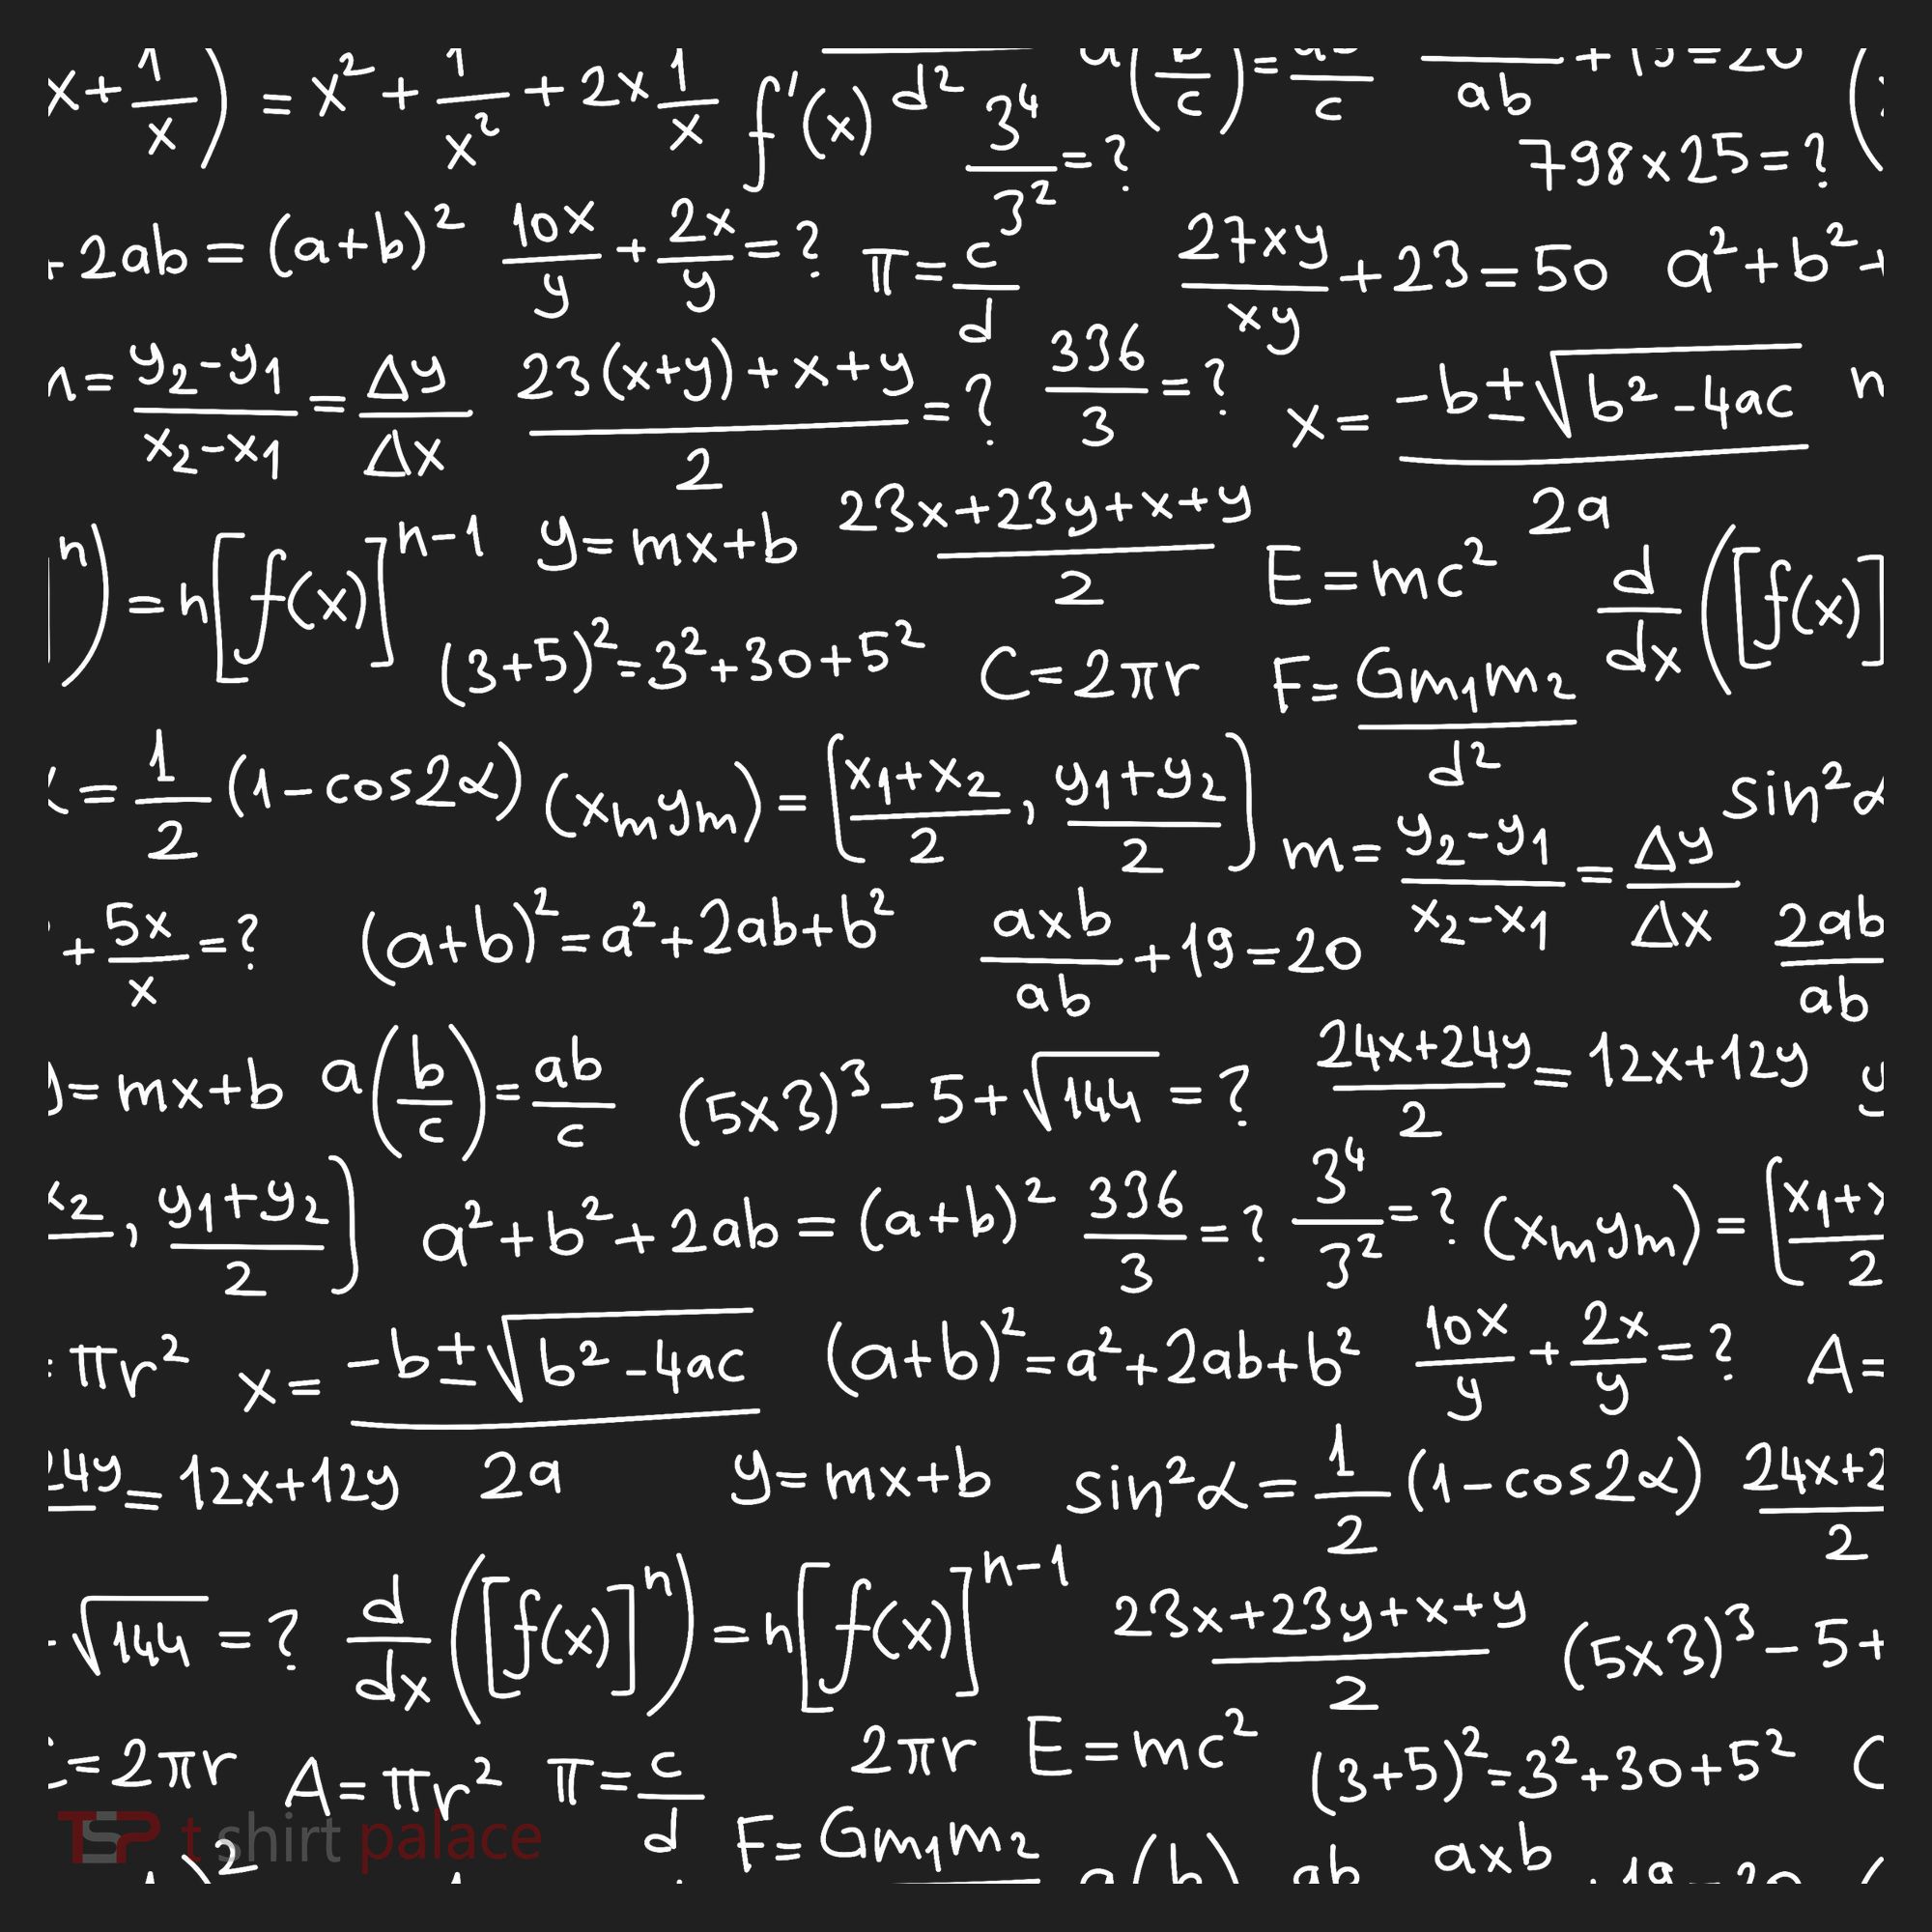 x + 1/x) = x² + 1/x² + 2x 1/x f'(x) d² 3⁴/3² = ? a(b/c) = ab/c /ab + 19 = 20
798 x 25 = ?
2ab = (a+b)² 10x/y + 2x/y = ? π = c/d 27xy/xy + 23 = 50 a² + b² +
= y₂-y₁/x₂-x₁ = Δy/Δx 23(x+y)+x+y/2 = ? 336/3 = ? x = -b±√b²-4ac/2a
n) = n[f(x)]ⁿ⁻¹ y = mx+b 23x+23y+x+y/2 E = mc² d/dx([f(x)]
(3+5)² = 3²+30+5² C = 2πr F = Gm₁m₂/d²
= 1/2 (1-cos2α) (xₘyₘ) = [x₁+x₂/2, y₁+y₂/2] sin²α
m = y₂-y₁/x₂-x₁ = Δy/Δx
+ 5x/x = ? (a+b)² = a²+2ab+b² axb/ab + 19 = 20 2ab/ab
y = mx+b a(b/c) = ab/c (5x3)³ - 5 + √144 = ? 24x+24y/2 = 12x+12y y
x₂, y₁+y₂/2] a²+b²+2ab = (a+b)² 336/3 = ? 3⁴/3² = ? (xₘyₘ) = [x₁+x/2
πr² x = -b±√b²-4ac/2a (a+b)² = a²+2ab+b² 10x/y + 2x/y = ? A =
24y = 12x+12y y = mx+b sin²α = 1/2 (1-cos2α) 24x+2/2
√144 = ? d/dx([f(x)]ⁿ) = n[f(x)]ⁿ⁻¹ 23x+23y+x+y/2 (5x3)³ - 5 +
= 2πr A = πr² π = c/d 2πr E = mc² (3+5)² = 3²+30+5² C
TSP t shirt palace F = Gm₁m₂ a(b) ab axb 19 = 20